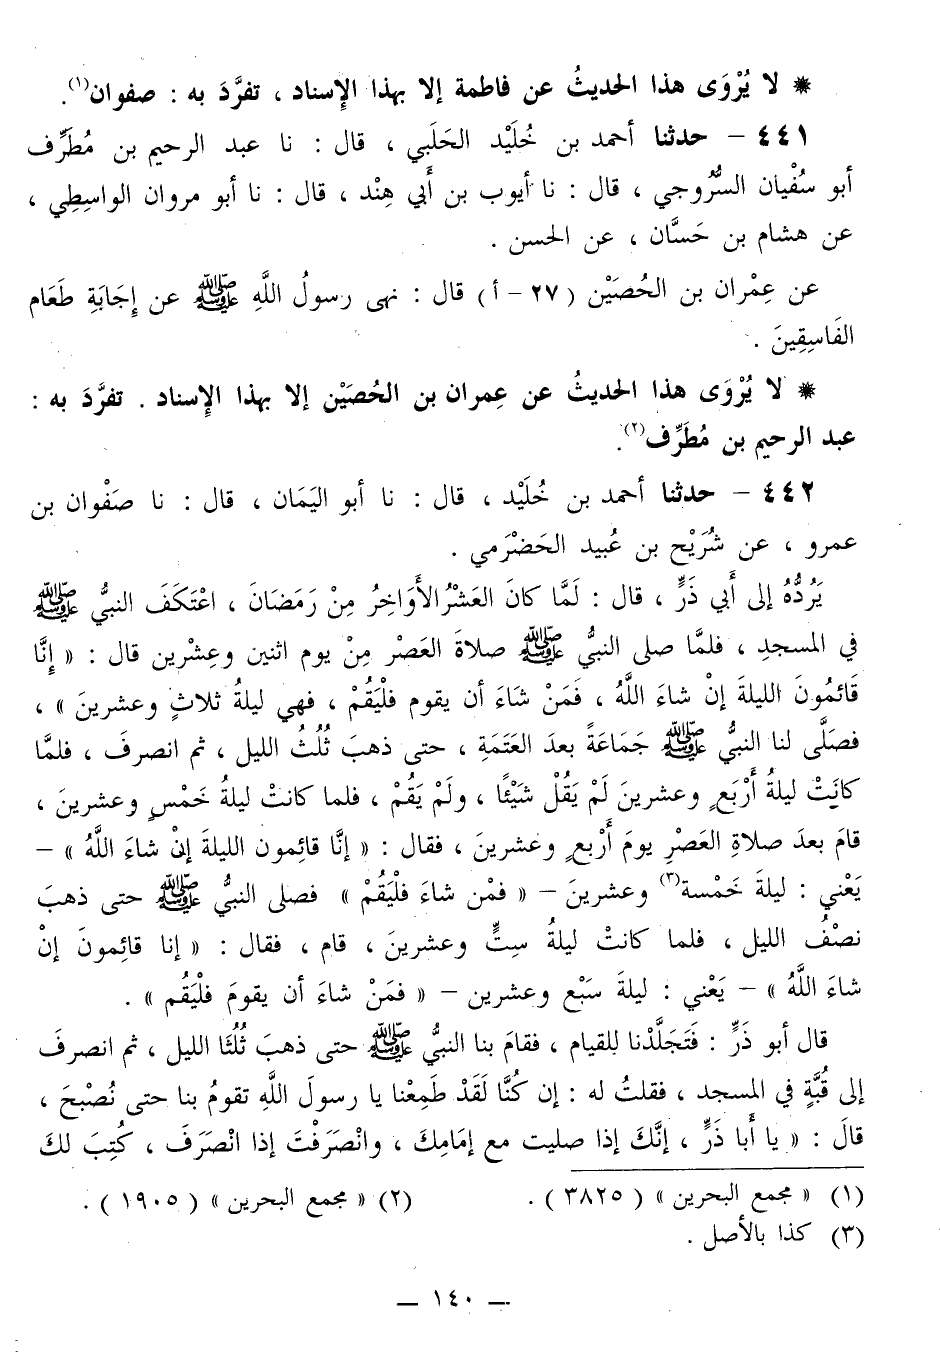 ❋ لا يُرْوَى هذا الحديثُ عن فاطمة إلا بهذا الإسناد ، تفرَّدَ به : صفوان(١).
٤٤١ – حدثنا أحمد بن خُلَيْد الحَلَبي ، قال : نا عبد الرحيم بن مُطَرِّف
أبو سُفْيان السَّرُوجي ، قال : نا أيوب بن أَبي هِنْد ، قال : نا أبو مروان الواسِطِي ،
عن هشام بن حَسَّان ، عن الحسن .
عن عِمْران بن الحُصَيْن ( ٢٧ – أ ) قال : نهى رسولُ اللَّهِ ﷺ عن إِجَابَةِ طَعَام
الفَاسِقِينَ .
❋ لا يُرْوَى هذا الحديثُ عن عِمران بن الحُصَيْن إلا بهذا الإسناد . تفرَّدَ به :
عبد الرحيم بن مُطَرِّف(٢).
٤٤٢ – حدثنا أحمد بن خُلَيْد ، قال : نا أبو اليَمَان ، قال : نا صَفْوان بن
عمرو ، عن شُرَيْح بن عُبيد الحَضْرَمي .
يَرُدُّهُ إلى أَبي ذَرٍّ ، قال : لَمَّا كانَ العَشْرُ الأَوَاخِرُ مِنْ رَمَضَانَ ، اعْتَكَفَ النبيُّ ﷺ
في المسجدِ ، فلمَّا صلى النبيُّ ﷺ صلاةَ العَصْر مِنْ يوم اثنين وعِشْرين قال : « إِنَّا
قَائمُونَ الليلةَ إنْ شاءَ اللَّهُ ، فَمَنْ شَاءَ أن يقوم فلْيَقُمْ ، فهي ليلةُ ثلاثٍ وعشرينَ » ،
فصَلَّى لنا النبيُّ ﷺ جَمَاعَةً بعدَ العَتَمَةِ ، حتى ذهبَ ثُلُثُ الليل ، ثم انصرفَ ، فلمَّا
كانَتْ ليلةُ أَرْبَعٍ وعشرينَ لَمْ يَقُلْ شَيْئًا ، ولَمْ يَقُمْ ، فلما كانتْ ليلةُ خَمْسٍ وعشرينَ ،
قامَ بعدَ صلاةِ العَصْرِ يومَ أَرْبعٍ وعشرينَ ، فقال : « إنَّا قائِمون الليلةَ إنْ شاءَ اللَّهُ » –
يَعْني : ليلةَ خَمْسة(٣) وعشرينَ – « فمْن شاءَ فلْيَقُمْ » فصلى النبيُّ ﷺ حتى ذهبَ
نصْفُ الليل ، فلما كانتْ ليلةُ سِتٍّ وعشرينَ ، قام ، فقال : « إنا قائِمونَ إنْ
شاءَ اللَّهُ » – يَعْني : ليلةَ سَبْع وعشرين – « فمَنْ شاءَ أن يقومَ فلْيَقُم » .
قال أبو ذَرٍّ : فَتَجَلَّدْنا للقيام ، فقامَ بنا النبيُّ ﷺ حتى ذهبَ ثُلُثَا الليل ، ثم انصرفَ
إلى قُبَّةٍ في المسجد ، فقلتُ له : إن كُنَّا لَقَدْ طَمِعْنا يا رسولَ اللَّهِ تقومُ بنا حتى نُصْبحَ ،
قالَ : « يا أَبا ذَرٍّ ، إنَّكَ إذا صليت مع إمَامِكَ ، وانْصَرَفْتَ إذا انْصَرَفَ ، كُتِبَ لكَ
(١) « مجمع البحرين » ( ٣٨٢٥ ) . (٢) « مجمع البحرين » ( ١٩٠٥ ) .
(٣) كذا بالأصل .
– ١٤٠ –